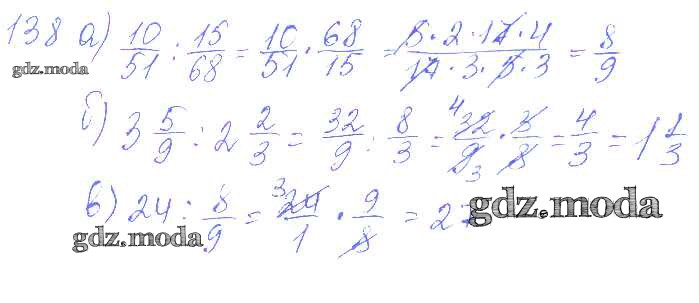 138 а) 10/51 : 15/68 = 10/51 · 68/15 = 5·2·17·4/17·3·5·3 = 8/9
gdz.moda
б) 3 5/9 : 2 2/3 = 32/9 : 8/3 = 4 32/9 3 · 3/8 = 4/3 = 1 1/3
в) 24 : 8/9 = 3 24/1 · 9/8 = 27
gdz.moda
gdz.moda